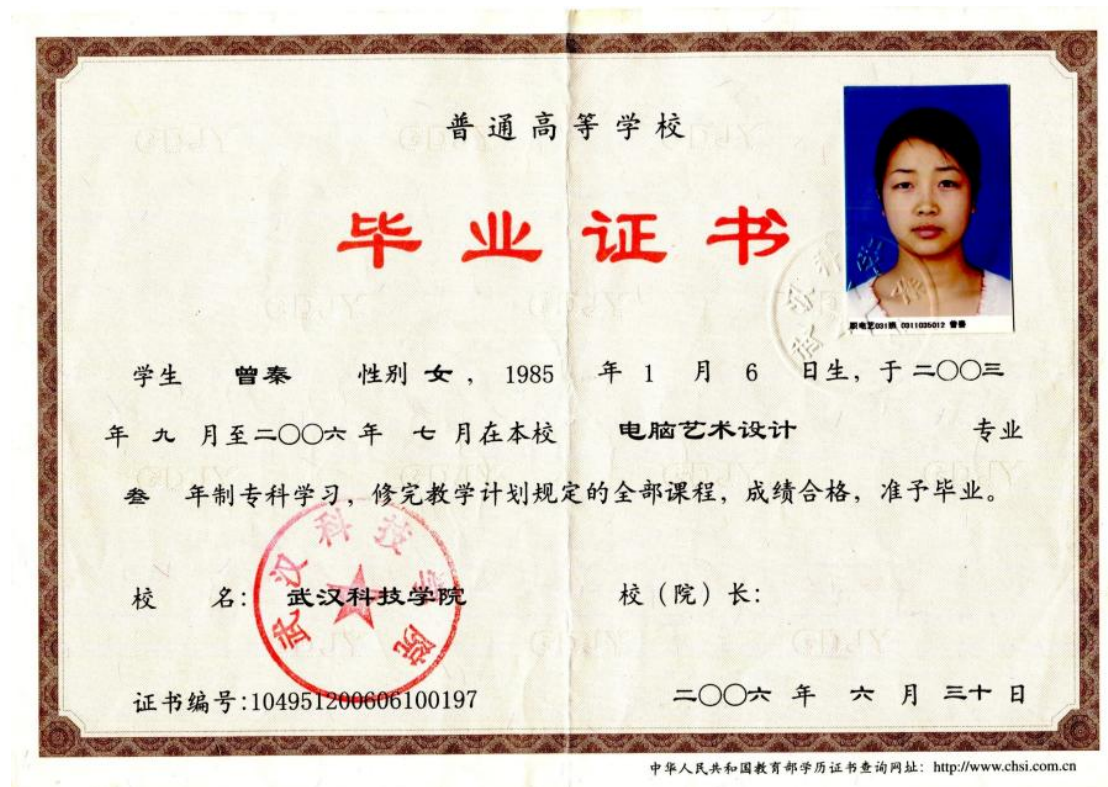 普通高等学校
毕业证书
职电艺031班 0311035012 曾秦
学生 曾秦 性别 女, 1985 年 1 月 6 日生, 于 二〇〇三
年 九 月至二〇〇六 年 七 月在本校 电脑艺术设计 专业
叁 年制专科学习, 修完教学计划规定的全部课程, 成绩合格, 准予毕业。
武汉科技学院
校 名: 武汉科技学院 校 (院) 长:
证书编号:104951200606100197 二〇〇六 年 六 月 三十 日
中华人民共和国教育部学历证书查询网址: http://www.chsi.com.cn